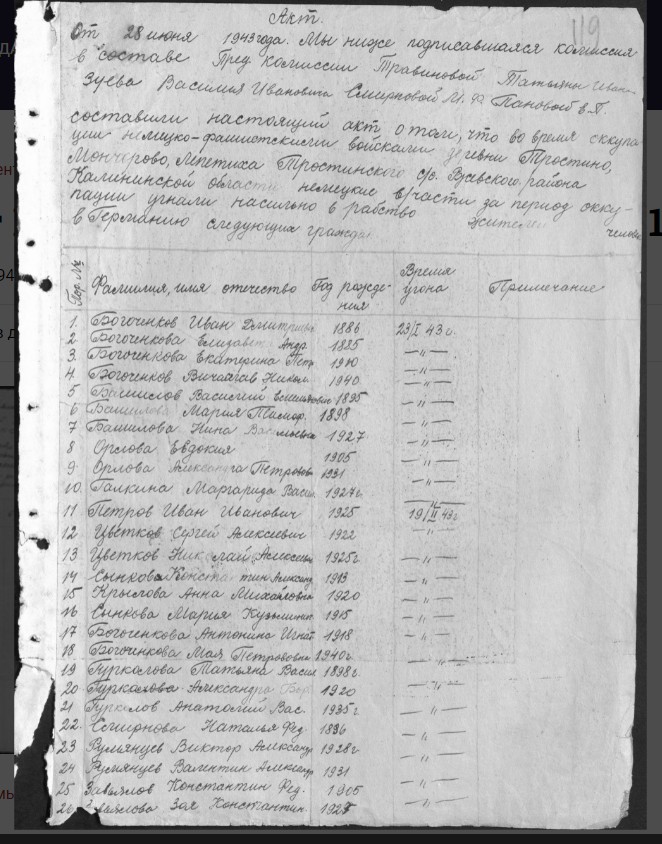 119
Акт.
От 28 июня 1943 года. Мы ниже подписавшаяся комиссия
в составе Пред. комиссии Травиновой Татьяны Иван
Зуева Василия Ивановича Смирновой М. Пановой в.П.
составили настоящий акт, о том, что во время оккупа
ции немецко-фашистскими войсками деревни Тростино,
Мончарово, Лепетиха Тростинского с/с. района
Калининской области немецкие в/части за период окку-
пации угнали насильно в рабство жителей человек
в Германию следующих граждан
Пор. № Фамилия, имя отечество Год рожде-ния Время угона Примечание
1. Богоченков Иван Дмитриев 1886 23/I 43 г.
2 Богоченкова Елизавета Андр. 1885 —"—
3. Богоченкова Екатерина Петр 1910 —"—
4. Богоченков 1940 —"—
5 Василий 1895 —"—
6 Мария 1898 —"—
7 Башилова Нина Васильевна 1927 —"—
8 Орлова Евдокия 1905 —"—
9 Орлова Александра Петровов 1931 —"—
10. Галкина Маргарида Васил. 1927г. —"—
11 Петров Иван Иванович 1925 19/II 43г
12 Цветков Сергей Алексеевич 1922 —"—
13 Цветков Николай Алексеев 1925г —"—
14 Сынкова Констатин Александ 1913 —"—
15 Крылова Анна Михайловна 1920 —"—
16 Сынкова Мария Кузьминич 1915 —"—
17 Богоченкова Антонина Игнат 1918 —"—
18 Богоченкова Мая Петрововна 1940г. —"—
19 Гурколова Татьяна Васил 1898г. —"—
20 Гурколова Александра 1920 —"—
21 Гурколов Анатолий Вас. 1935г —"—
22. Смирнова Наталья Фед. 1896 —"—
23 Румянцев Виктор Александ 1928г. —"—
24 Румянцев Валентин Александ 1931 —"—
25 Завьялов Константин Фед. 1905 —"—
26 Завьялова Зоя Константин. 1927 —"—